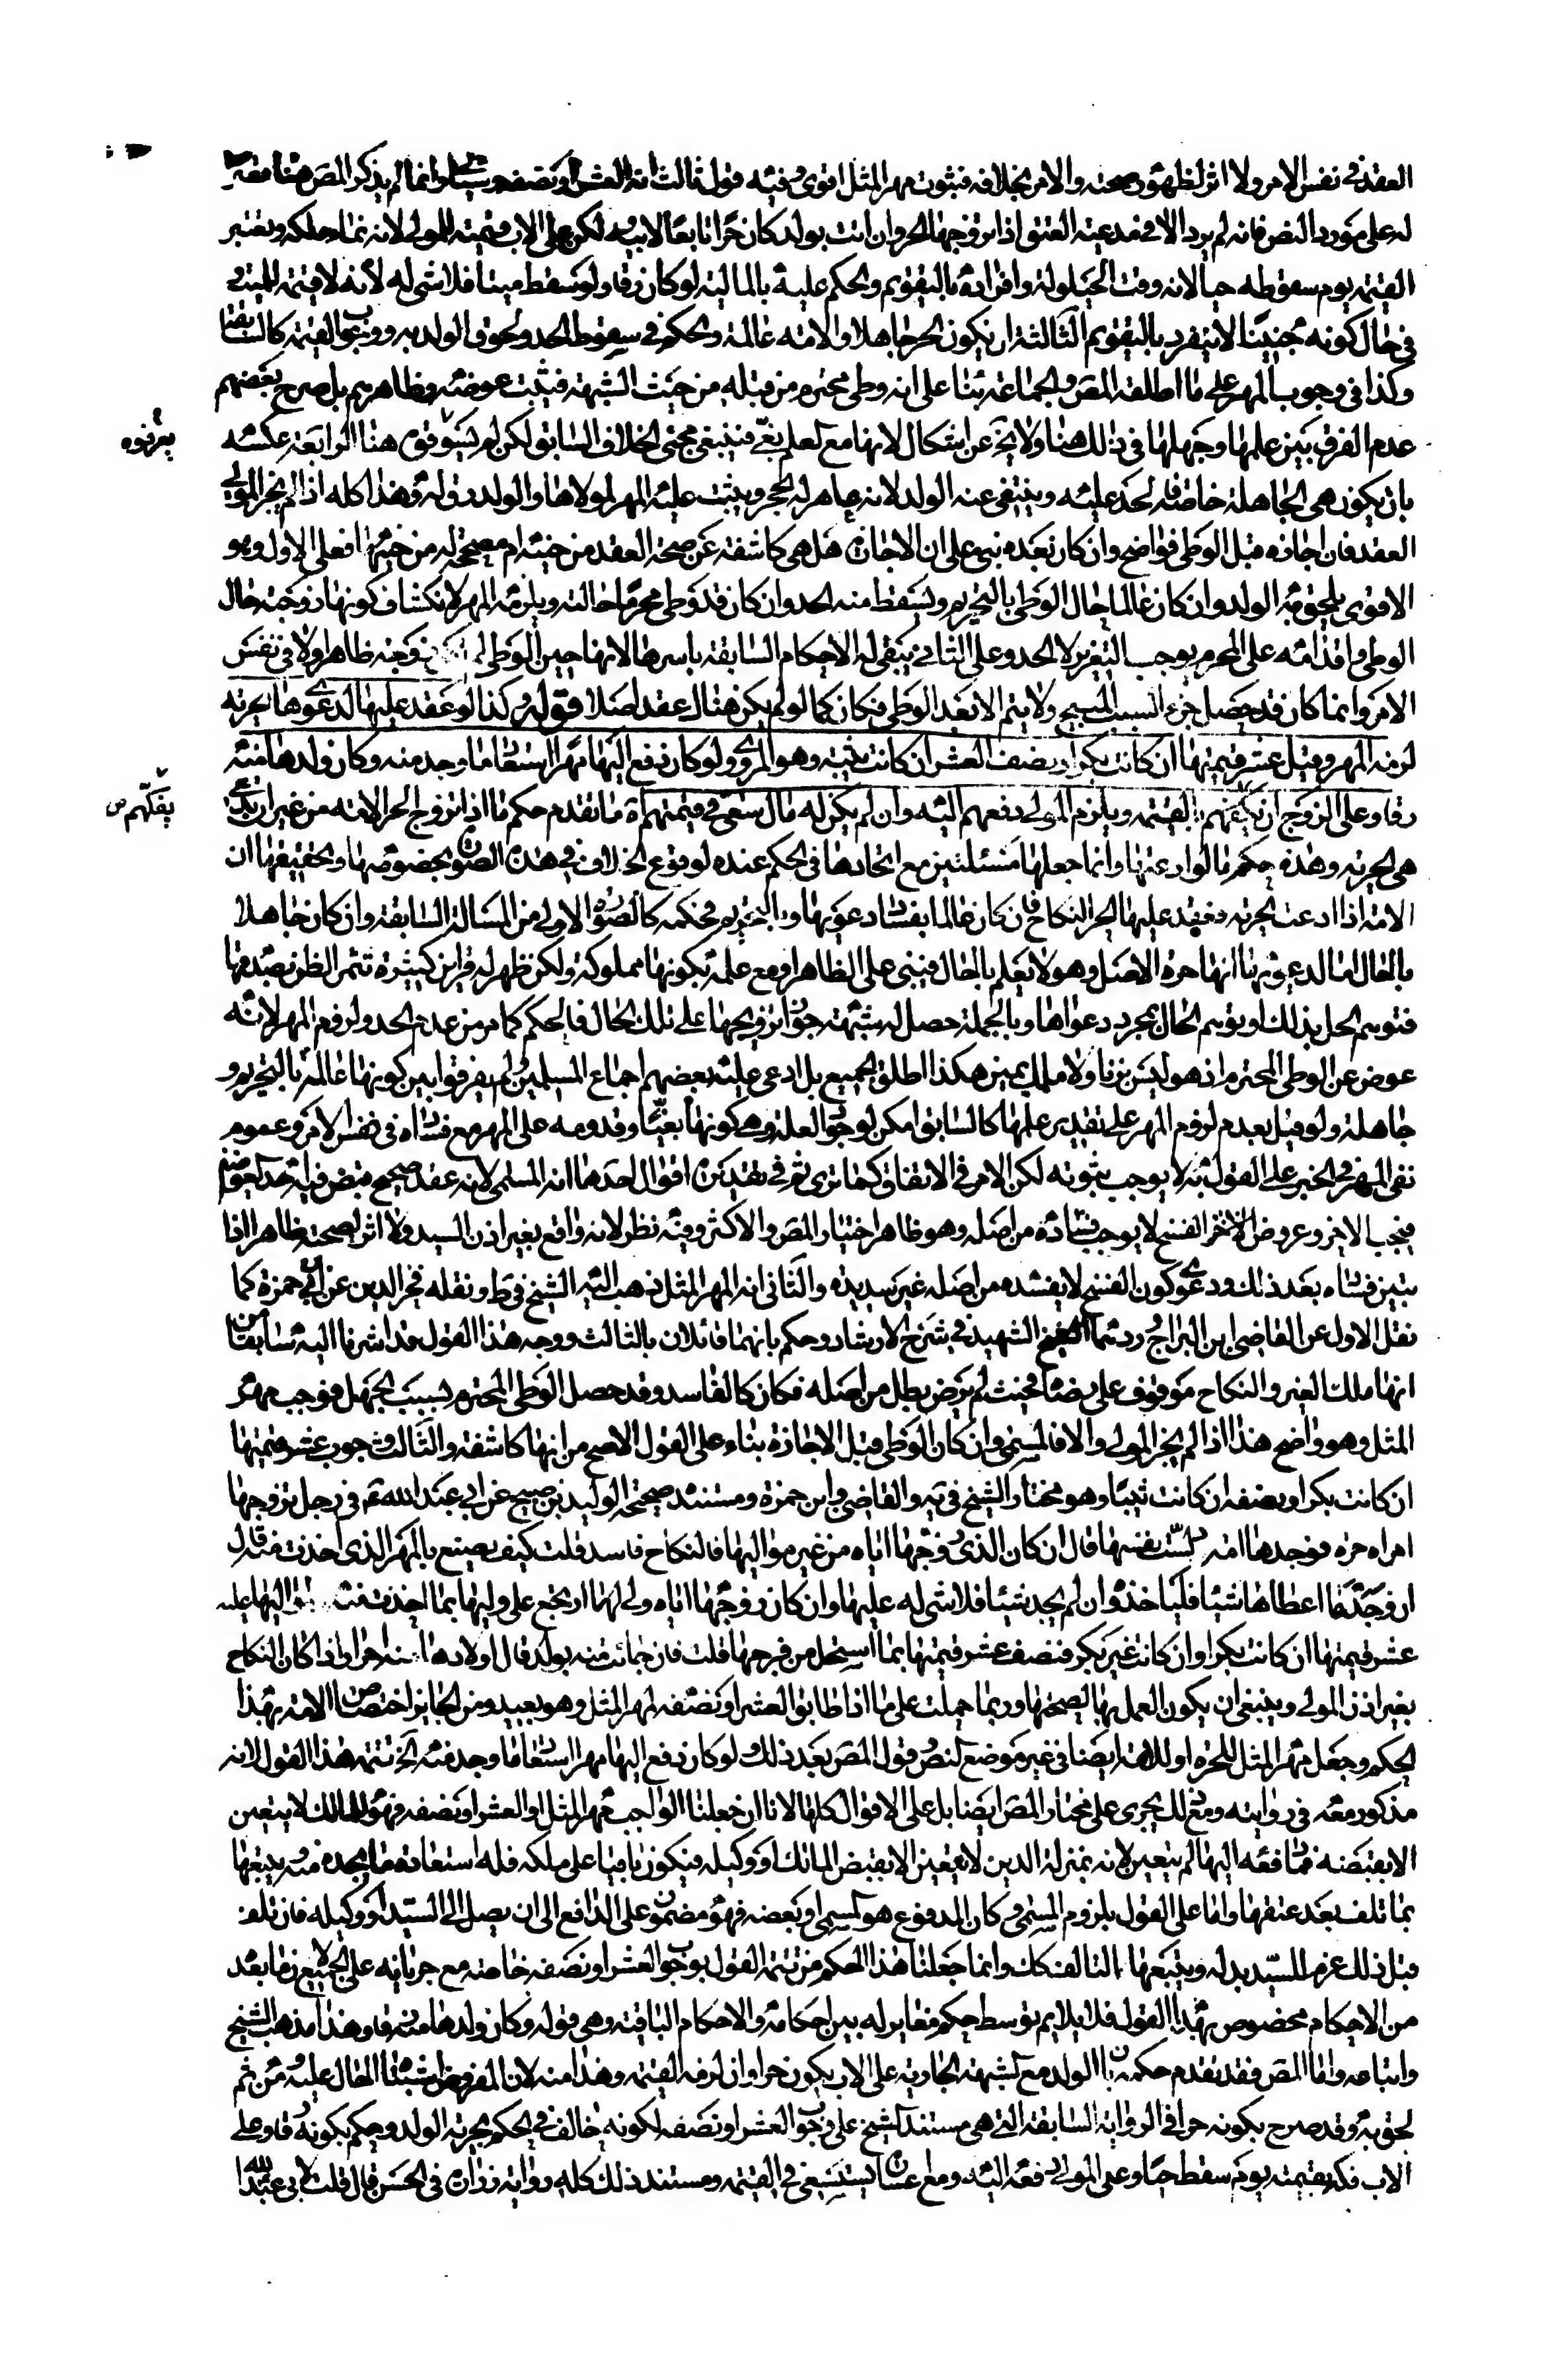 العقد في نفس الامر ولا اثر لظهور صحته والامر بخلافه فثبوت مهر المثل اقوى وفيه قول ثالث انه العشر او نصفه وسيأتى وانما لم يذكره المص هنا
له على مورد النص فانه لم يرد الا في مدعية العتق اذا تزوجها الحر وان اتت بولد كان حرا تابعا لابيه لكن على الاب قيمته للمولى لانه نماء ملكه ويعتبر
القيمة يوم سقوطه حيا لانه وقت الحيلولة وافراده بالتقويم والحكم عليه بالمالية لو كان رقا ولو سقط ميتا فلا شى له لانه لا قيمة للميت و
في حال كونه جنينا لا ينفرد بالتقويم الثالثة ان يكون الحر جاهلا والامة عالمة والحكم في سقوط الحد ولحوق الولد به ووجوب القيمة كالسابقة
وكذا في وجوب المهر على ما اطلقه المص والجماعة بناء على انه وطى محترم من قبله من حيث الشبهة فيثبت عوضه وظاهرهم بل صرح بعضهم
عدم الفرق بين علمها وجهلها في ذلك هنا ولا يخ عن اشكال لانها مع العلم بغى فينبغي مجئ الخلاف السابق لكن لم يسوقوه هنا الرابعة عكسه
بان يكون هي الجاهلة خاصة فالحد عليه وينتفى عنه الولد لانه عاهر له الحجر ويثبت عليه المهر لمولاها والولد رق له وهذا كله اذا لم يجز المولى
العقد فان اجازه قبل الوطى فواضح وان كان بعده بنى على ان الاجازة هل هى كاشفة عن صحة العقد من حينه ام مصححة له من حينها فعلى الاول وهو
الاقوى يلحق به الولد وان كان عالما حال الوطى بالتحريم ويسقط منه الحد وان كان قد وطى محرما حالته ويلزمه المهر لانكشاف كونها زوجته حال
الوطى واقدامه على المحرم يوجب التعزير لا الحد وعلى الثاني ينتفى له الاحكام السابقة باسرها لانها حين الوطى لم تكن زوجته ظاهرا ولا في نفس
الامر وانما كان قد حصل جزء السبب المبيح ولا يتم الا بعد الوطى فكان كما لو لم يكن هناك عقد اصلا قوله وكذا لو عقد عليها لدعوها الحرية
لزمه المهر وقيل عشر قيمتها ان كانت بكرا ونصف العشر ان كانت ثيبة وهو المروى ولو كان دفع اليها مهرا استعاد ما وجد منه وكان ولدها منه
رقا وعلى الزوج ان يفكهم بالقيمة ويلزم المولى دفعهم اليه وان لم يكن له مال سعى في قيمتهم ما تقدم حكم ما اذا تزوج الحر الامة من غير ان تدعى
هى الحرية وهذه حكم ما لو ادعتها وانما جعلها مسئلتين مع اتحادها في الحكم عنده لوقوع الخلاف في هذه الصورة بخصوصها وتحقيقها ان
الامة اذا ادعت الحرية فعقد عليها الحر النكاح فان كان عالما بفساد دعويها وبالتحريم فحكمه كالصورة الاولى من المسالة السابقة وان كان جاهلا
بالحال اما لدعويها انها حرة الاصل وهو لا يعلم بالحال فبنى على الظاهر او مع علمه بكونها مملوكة ولكن ظهر له قراين كثيرة تثمر الظن بصدقها
فتوهم الحل بذلك او توهم الحال بمجرد دعواها وبالجملة حصل له شبهة جواز تزويجها على تلك الحال فالحكم كما مر من عدم الحد ولزوم المهر لانه
عوض عن الوطى المحترم اذ هو ليس بزنا ولا ملك يمين هكذا اطلق الجميع بل ادعى عليه بعضهم اجماع المسلمين ولم يفرقوا بين كونها عالمة بالتحريم و
جاهلة ولو قيل بعدم لزوم المهر على تقدير علمها كالسابق امكن لوجود العلة وهى كونها بغيا وقدومه على المهر مع فساده في نفس الامر وعموم
نفى المهر في الخبر على القول به لا يوجب ثبوته لكن الامر في الاتفاق كما ترى ثم في تقديره اقوال احدها انه المسمى لانه عقد صحيح قبض فيه احد العوضين
فيجب الاخر وعروض الفسخ لا يوجب فساده من اصله وهو ظاهر اختيار المص والاكثر وفيه نظر لانه واقع بغير اذن السيد ولا اثر لصحته ظاهرا اذا
تبين فساده بعد ذلك ودعوى كون الفسخ لا يفسده من اصله غير سديدة والثانى انه المهر المثل ذهب اليه الشيخ في ط ونقله فخر الدين عن ابن حمزة كما
نقل الاول عن القاضى ابن البراج وردهما الشهيد في شرح الارشاد وحكم بانهما قائلان بالثالث ووجه هذا القول قد اشرنا اليه سابقا من
انها ملك الغير والنكاح موقوف على رضاه فحيث لم يرض بطل من اصله فكان كالفاسد وقد حصل الوطى المحترم بسبب الجهل فوجب مهر
المثل وهو واضح هذا اذا لم يجز المولى والا فالمسمى وان كان الوطى قبل الاجازة بناء على القول الاصح من انها كاشفة والثالث وجوب عشر قيمتها
ان كانت بكرا ونصفه ان كانت ثيبا وهو مختار الشيخ في يه والقاضى وابن حمزة ومستنده صحيحة الوليد بن صبيح عن ابى عبد الله ع في رجل تزوجها
امراة حرة فوجدها امة دلست نفسها قال ان كان الذى زوجها اياه من غير مواليها فالنكاح فاسد قلت كيف يصنع بالمهر الذى اخذت منه قال
ان وجد مما اعطاها شيئا فلياخذه وان لم يجد شيئا فلا شى له عليها وان كان زوجها اياه ولى لها ارتجع على وليها بما اخذت منه ولمواليها عليه
عشر قيمتها ان كانت بكرا وان كانت غير بكر فنصف عشر قيمتها بما استحل من فرجها قلت فان جائت منه بولد قال اولادها منه احرار اذا كان النكاح
بغير اذن المولى وينبغى ان يكون العمل بها لصحتها وربما حملت على ما اذا طابق العشر او نصفه لمهر المثل وهو بعيد ومن الجايز اختصاص الامة بهذا
الحكم وجعل مهر المثل للحرة او للامة ايضا في غير موضع النص قول المص بعد ذلك ولو كان دفع اليها مهرا استعاد ما وجد منه الخ تتمة هذا القول لانه
مذكور معه في روايته ومع ذلك يجرى على مختار المص ايضا بل على الاقوال كلها لانا ان جعلنا الواجب مهر المثل او العشر او نصفه فهو للمالك لا يتعين
الا بقبضه فما دفعه اليها لم يتعين لانه بمنزلة الدين لا يتعين الا بقبض المالك او وكيله فيكون باقيا على ملكه فله استعادة ما يجده منه ويتبعها
بما تلف بعد عتقها واما على القول بلزوم المسمى وكان المدفوع هو المسمى او بعضه فهو مضمون على الدافع الى ان يصل الى السيد او وكيله فان تلف
قبل ذلك غرم للسيد بدله ويتبعها بالتالف كك وانما جعلنا هذا الحكم من تتمة القول بوجوب العشر او نصفه خاصة مع جريانه على الجميع لان ما بعد
من الاحكام مخصوص بهذا القول فلا يلايم توسط حكم مغاير له بين احكامه والاحكام الباقية وهى قوله وكان ولدها منه رقا وهذا مذهب الشيخ
واتباعه واما المص فقد تقدم حكمه بان الولد مع الشبهة الجارية على الاب يكون حرا وان لزمه القيمة وهذا منه لان المفروض اشتباه الحال عليه ومن ثم
لحق به وقد صرح بكونه حرا في الرواية السابقة التى هى مستند الشيخ على وجوب العشر او نصفه لكونه خالف في الحكم بحرية الولد وحكم بكونه رقا وعلى
الاب فكه بقيمته يوم سقط حيا وعلى المولى دفعه اليه ومع اعساره يستسعى في القيمة ومستند ذلك كله رواية زرارة في الحسن قال قلت لابى عبد الله
يعرفوه
يفكهم ص